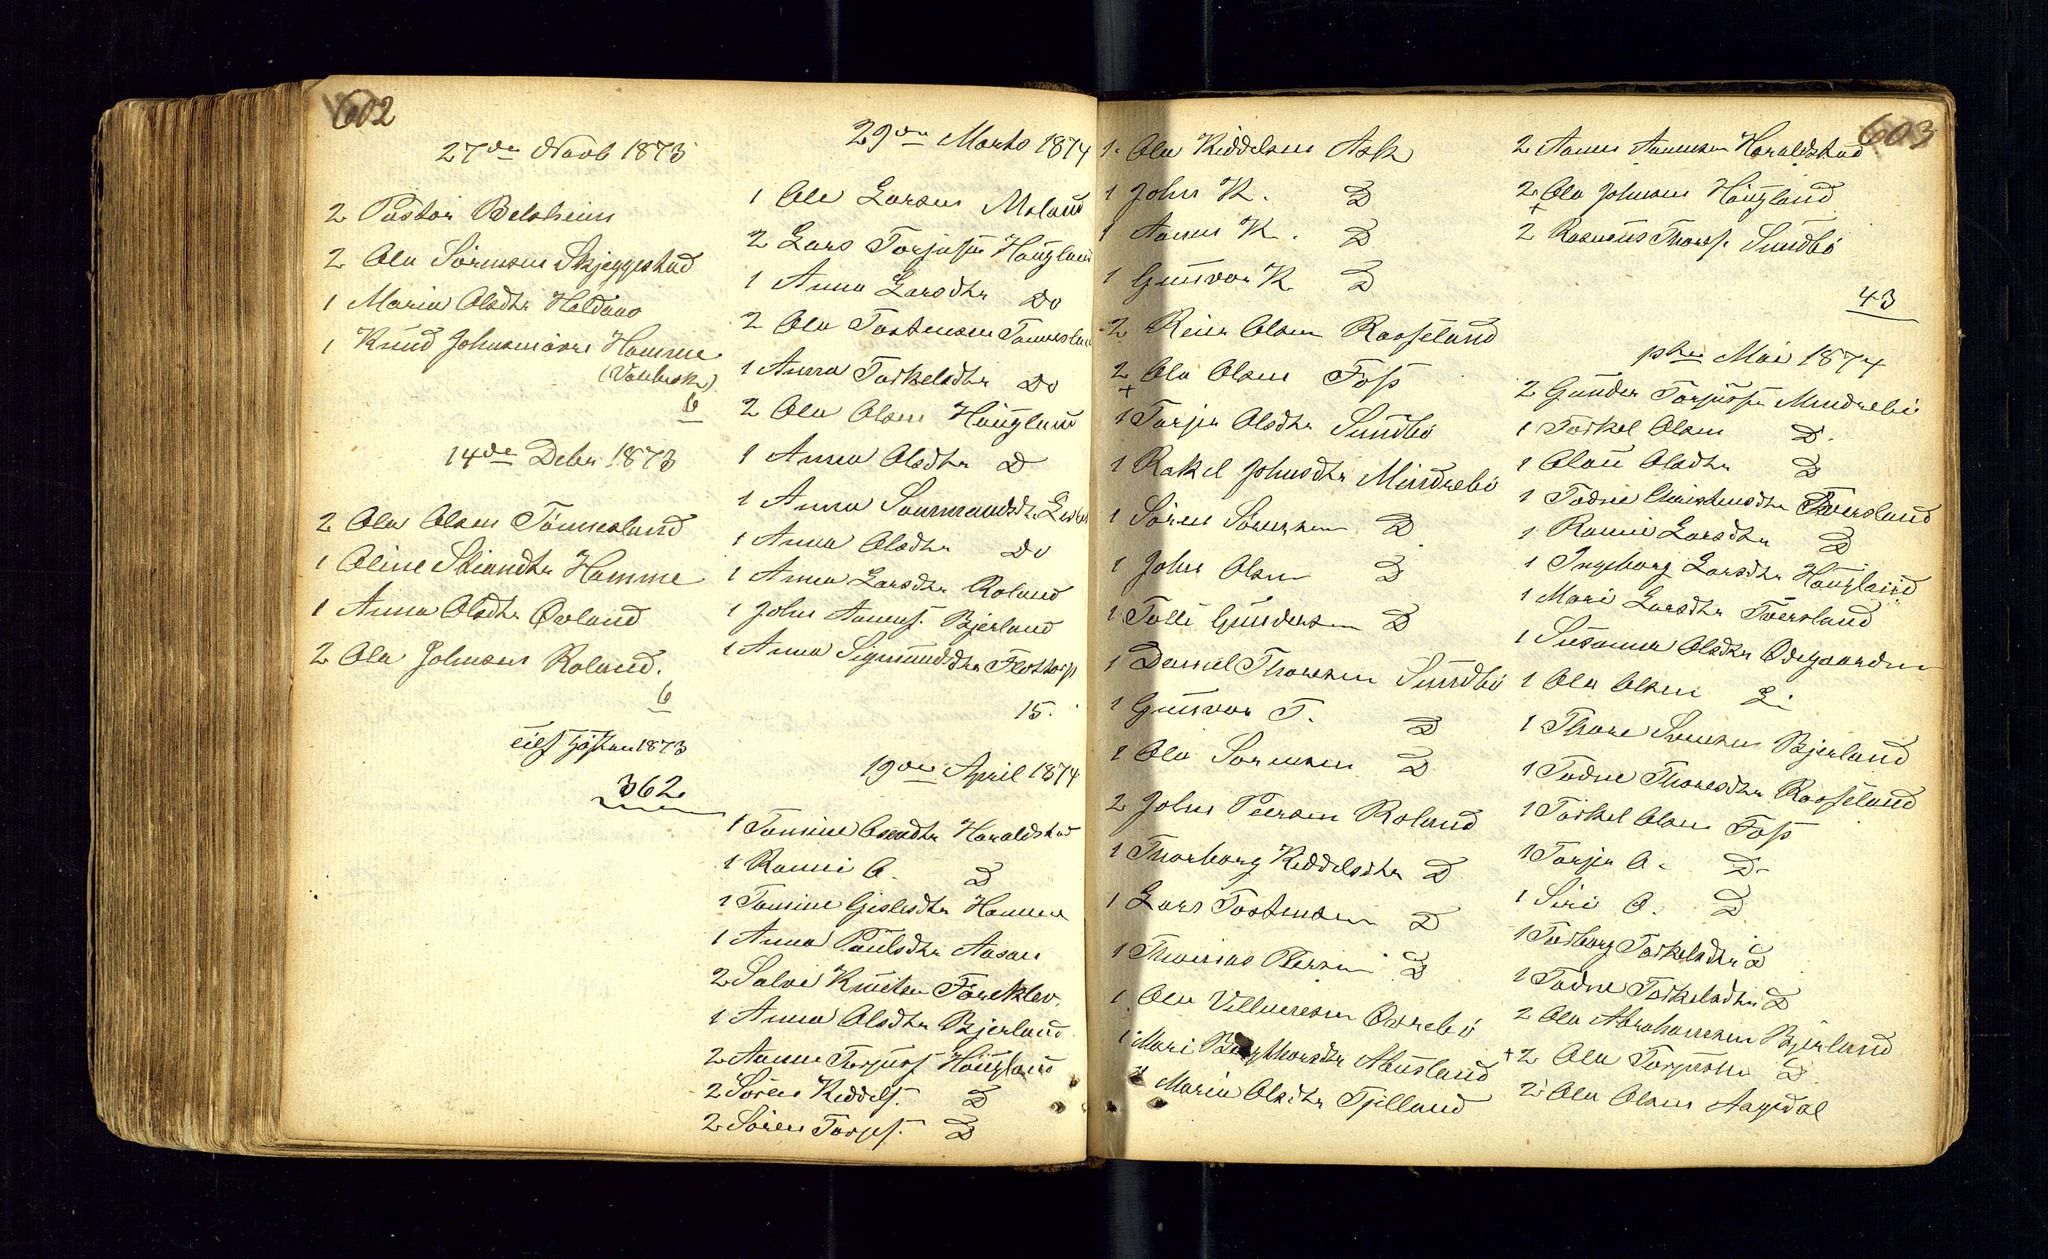 602
27de Novb 1873
2 Pastor Belsheim
2 Ole Sörensen Skjeggestad
1 Maria Olsdtr Haldaas
1 Knud Johnsen Homme
6
14de Debr 1873
2 Ole Olsen Tönnesland
1 Oline Stiandtr Homme
1 Anna Olsdtr Øvland
2 Ole Johnsen Roland.
6
1873
362
29de Marts 1874
1 Ole Larsen Moland
2 Lars Torjusse Haugland
1 Anna Larsdtr Do
2 Ole Tostensen Tönnesland
1 Anna Torkelsdtr Do
2 Ole Olsen Haugland
1 Anna Olsdtr D
1 Anna
1 Anna Olsdtr Do
1 Anna Larsdtr Roland
1 John Aanens. Bjerland
1 Anna Sigmundsdtr
15.
19de April 1874
1 Tomine Haraldstad
1 Ronni O. D
1 Tomine Gislesdtr Homme
1 Anna Paulsdtr Aasen
2 Salve Knutsen
1 Anna Olsdtr Bjerland
2 Aanen Torjuss Haugland
2 Sören Keddels. D
2 Sören Torjus. D
603
1 Ole Keddelsen Ask
1 John K. D
1 Aanen K. D
1 Gunvor K D
2 Reier Olsen Rosseland
2 Ole Olsen Foss
+
1 Torjer Olsdtr Sundbö
1 Rakel Johnsdtr Mindrebö
1 Sören Sörensen D
1 John Olsen D
1 Tolli Gundersen D
1 Daniel Thoresen Sundbö
1 Gunvor T. D
1 Ole Sörensen D
2 John Peersen Roland
1 Thorborg Keddelsdtr D
1 Lars Tostensen D
1 Thomas Peersen D
1 Ole Villumsen Øvrebö
1 Mari Bergthorsdtr Abusland
Maria Olsdtr Fjelland
2 Aanen Aanensen Haraldstad
2 Ole Johnsen Haugland
+
2 Rasmus Thores. Sundbö
43
Mai 1874
2 Gunder Torjusse Mindrebö
1 Torkel Olsen D.
1 Olau Olsdtr D
1 Todne Christensdtr Tversland
1 Ronni Larsdtr D
1 Ingeborg Larsdtr Haugland
1 Mari Larsdtr Tversland
1 Susanna Olsdtr Ødegaarden
1 Ole Olsen
1 Thore Svensen Bjerland
1 Todne Thoresdtr Rosseland
1 Torkel Olsen Foss
1 Torjer O. D.
1 Siri O. D
1 Torborg Torkelsdtr D
1 Todne Torkelsdtr D
2 Ole Abrahamsen Bjerland
+ 2 Ole Torjussen D
2 Ole Olsen Aagedal